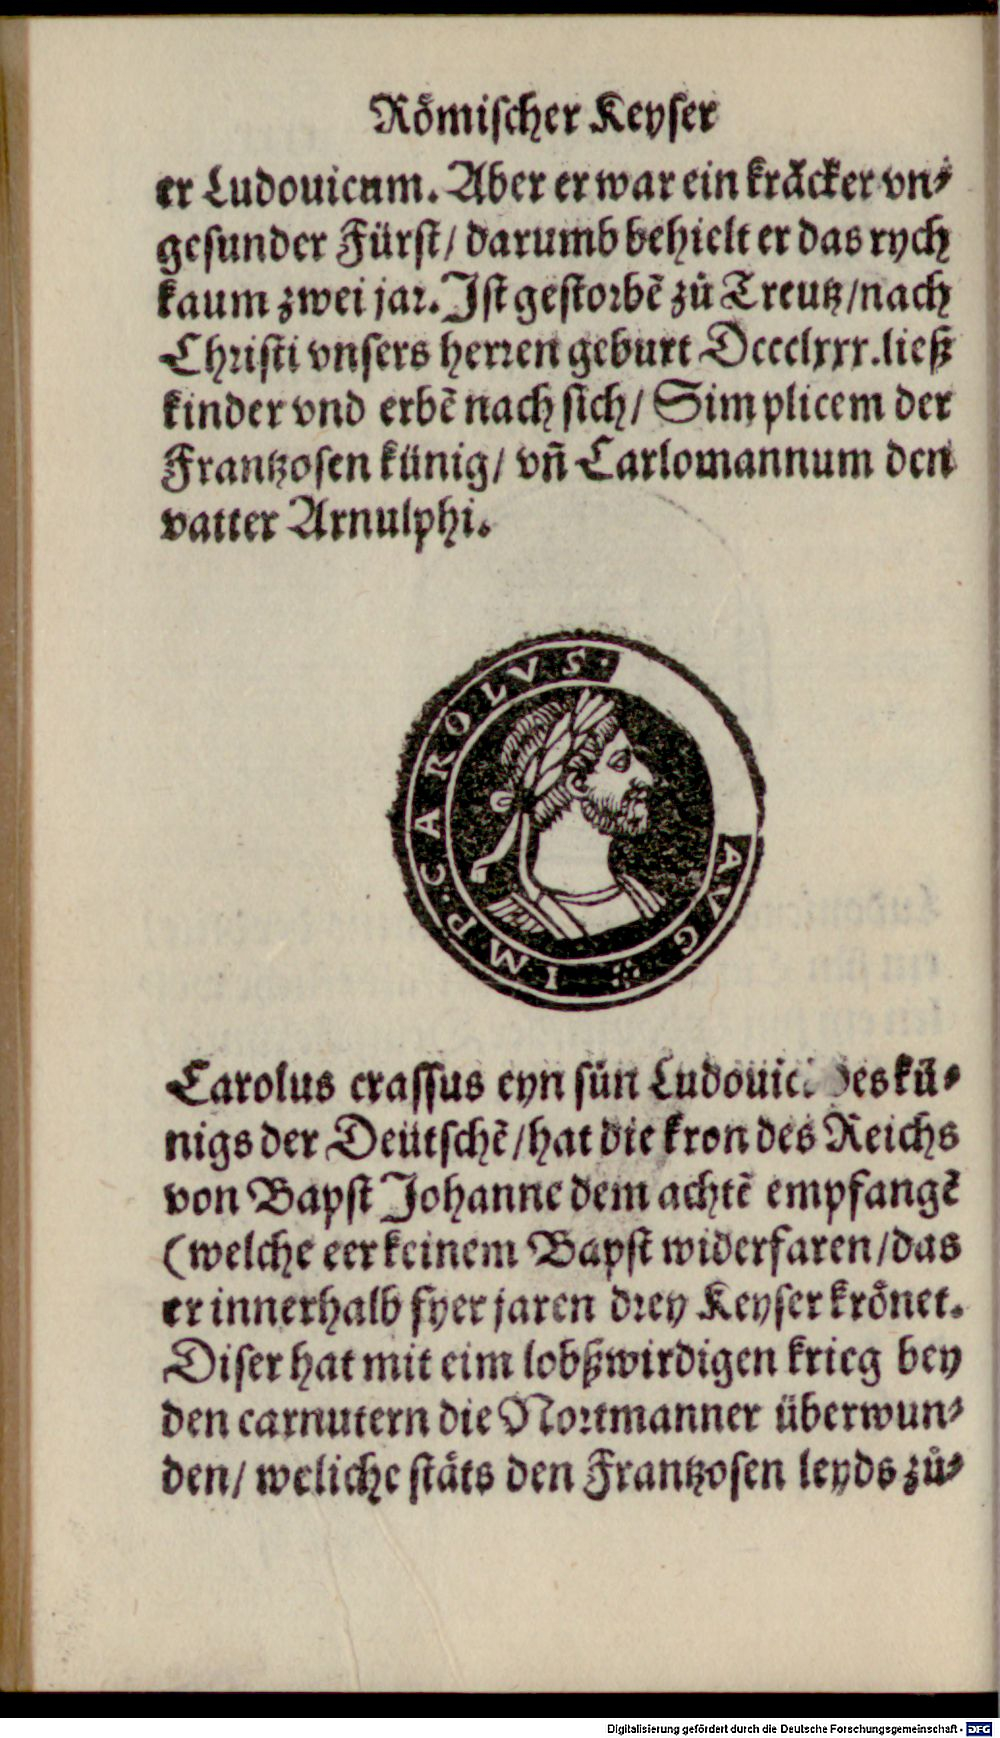 Roͤmischer Keyser
er Ludouicum. Aber er war ein kraͤcker vn⸗
gesunder Fürst/ darumb behielt er das rych
kaum zwei jar. Ist gestorbē zuͦ Treutz/nach
Christi vnsers herren geburt Dccclxxx.ließ
kinder vnd erbē nach sich/ Simplicem der
Frantzosen künig/ vn̄ Carlomannum den
vatter Arnulphi.
IMP. CAROLVS. AVG
Carolus crassus eyn sün Ludouici des kü⸗
nigs der Deütschē/hat die kron des Reichs
von Bapst Johanne dem achtē empfangē
(welche eer keinem Bapst widerfaren/das
er innerhalb fyer jaren drey Keyser kroͤnet.
Diser hat mit eim lobßwirdigen krieg bey
den carnutern die Nortmanner überwun⸗
den/ weliche staͤts den Frantzosen leyds zuͦ⸗
Digitalisierung gefördert durch die Deutsche Forschungsgemeinschaft - DFG